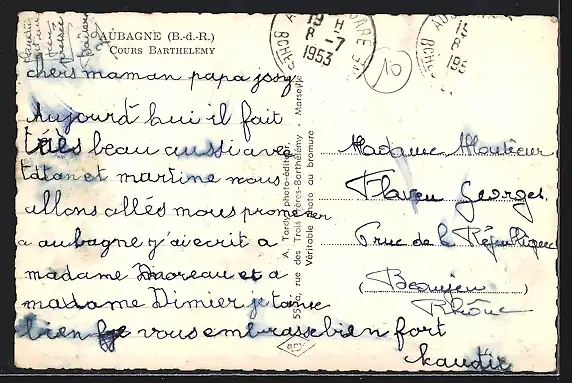 AUBAGNE (B.-d.-R.)
COURS BARTHELEMY
chers maman papa josy
Aujourd hui il fait
très beau aussi avec
tatan et martine nous
allons allés nous promener
a aubagne j'ai ecrit a
madame Moreau et a
madame Dimier je t'aime
bien je vous embrasse bien fort
A. Tardy, photo-éditeur,
55, rue des Trois Frères-Barthélemy - Marseille
Véritable photo au bromure
19 H
8 -7
1953
GARE
10
19
8
195
Madame Monsieur
Georges
rue de la République
(Beaujeu)
Rhône